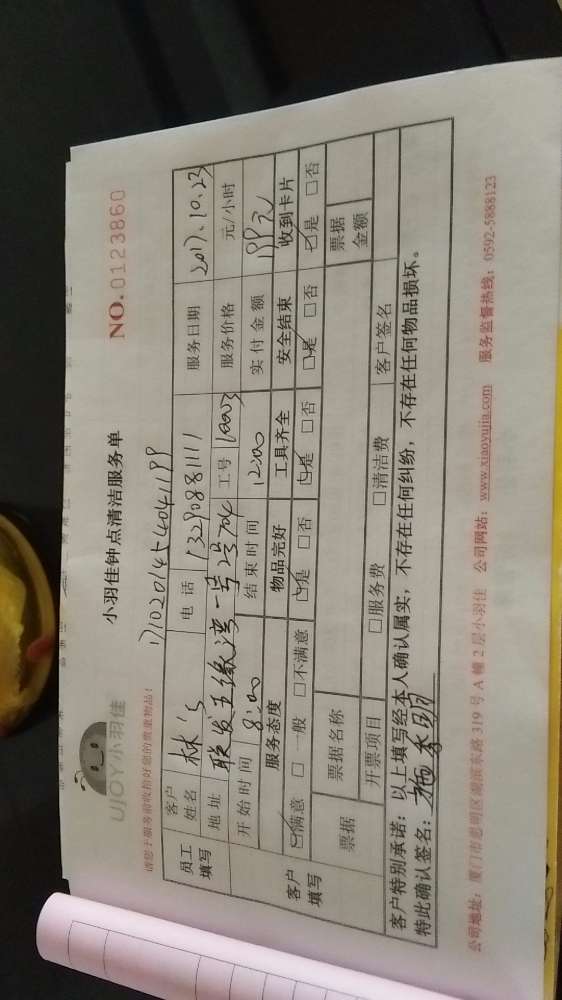 UJOY小羽佳
小羽佳钟点清洁服务单
NO.0123860
请您于服务前收拾好您的贵重物品！
1710201454041199
员工填写 客户姓名 林's 电话 13290881111 服务日期 2017.10.23
地址 联发五缘湾一号2号704 工号 10003 服务价格 元/小时
开始时间 8:00 结束时间 12:00 实付金额 199元
客户填写 服务态度 物品完好 工具齐全 安全结束 收到卡片
☑满意 □一般 □不满意 ☑是 □否 ☑是 □否 ☑是 □否 ☑是 □否
票据 票据名称 票据金额
开票项目 □服务费 □清洁费 客户签名
客户特别承诺：以上填写经本人确认属实，不存在任何纠纷，不存在任何物品损坏。
特此确认签名：
公司地址：厦门市思明区湖滨东路319号A幢2层小羽佳 公司网站：www.xiaoyujia.com 服务监督热线：0592-5888123